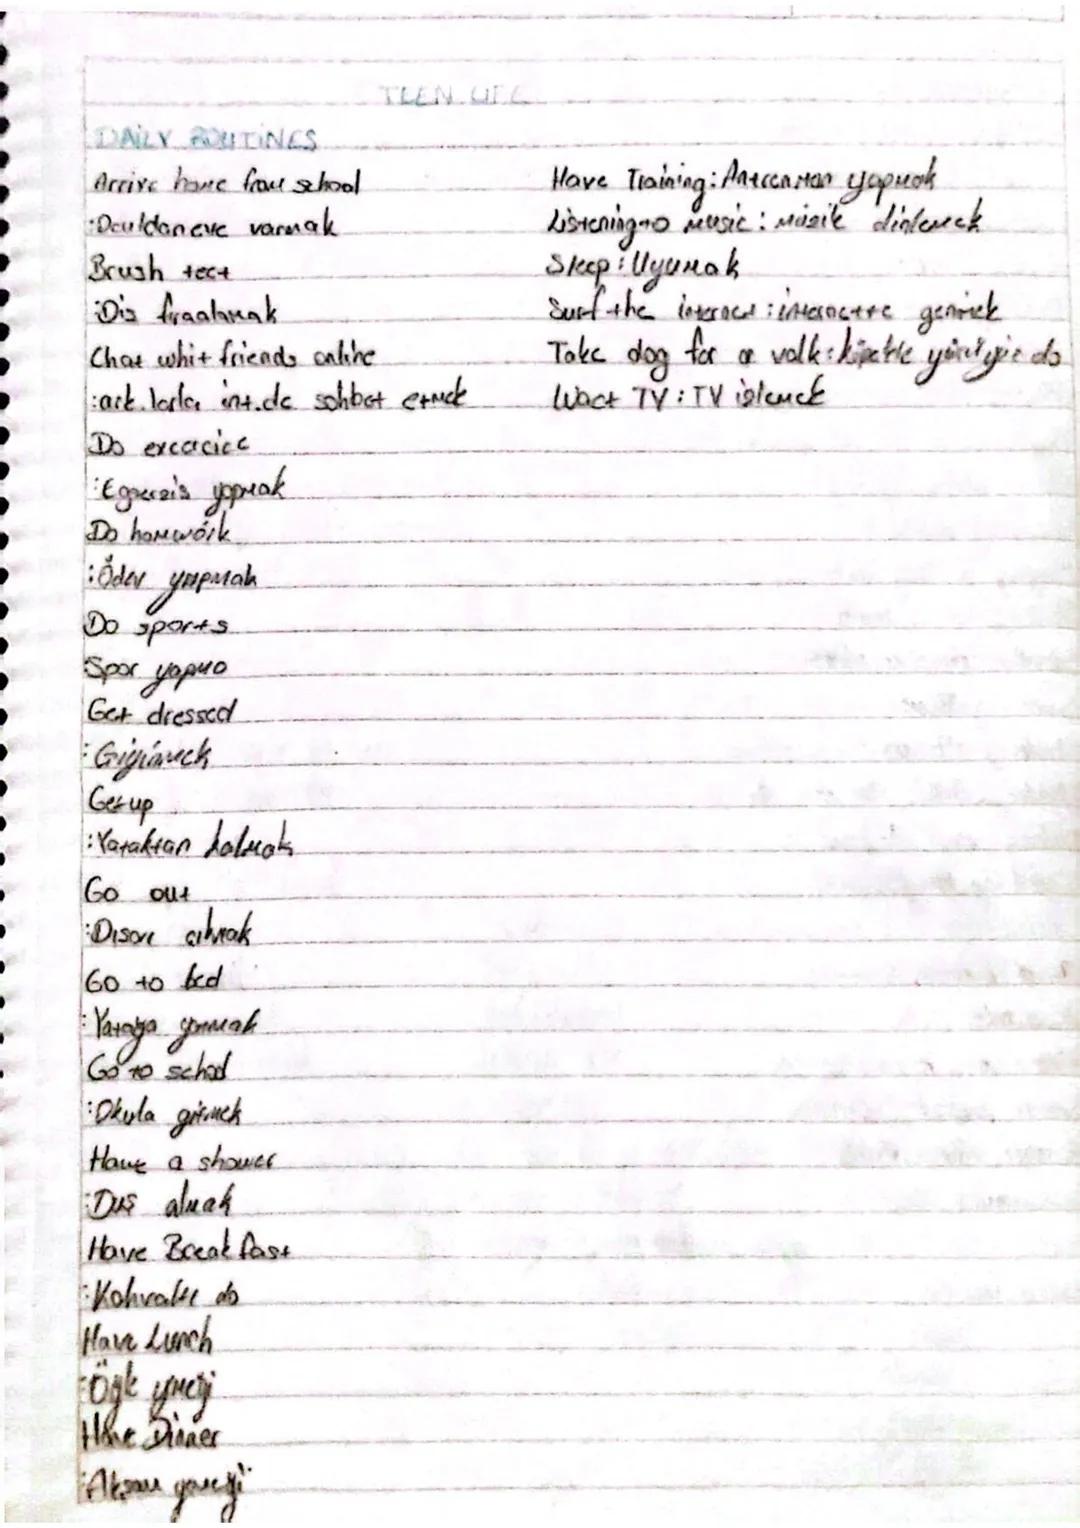 TEEN LIFE
DAILY ROUTINES
Arrive home from school
:Okuldan eve varmak
Brush teet
:Diş fırçalamak
Chat whit friends online
:ark.larla int.de sohbet etmek
Do excercice
:Egzersis yapmak
Do homwork
:Ödev yapmak
Do sports
Spor yapma
Get dressed
:Giyinmek
Get up
:Yataktan kalmak
Go out
:Dısarı cıkmak
Go to bed
:Yatağa
Go to school
:Okula gitmek
Have a shower
:Duş almak
Have Breakfast
:Kahvaltı
Have Lunch
:Öğle ymeği
Have Dinner
:Aksam yemeği
Have Training: Antrenman yapmak
Listening to Music: müzik dinlemek
Sleep: Uyumak
Surf the internet: internette gezmek
Take dog for a valk: köpekle
Wact TV: TV izlemek